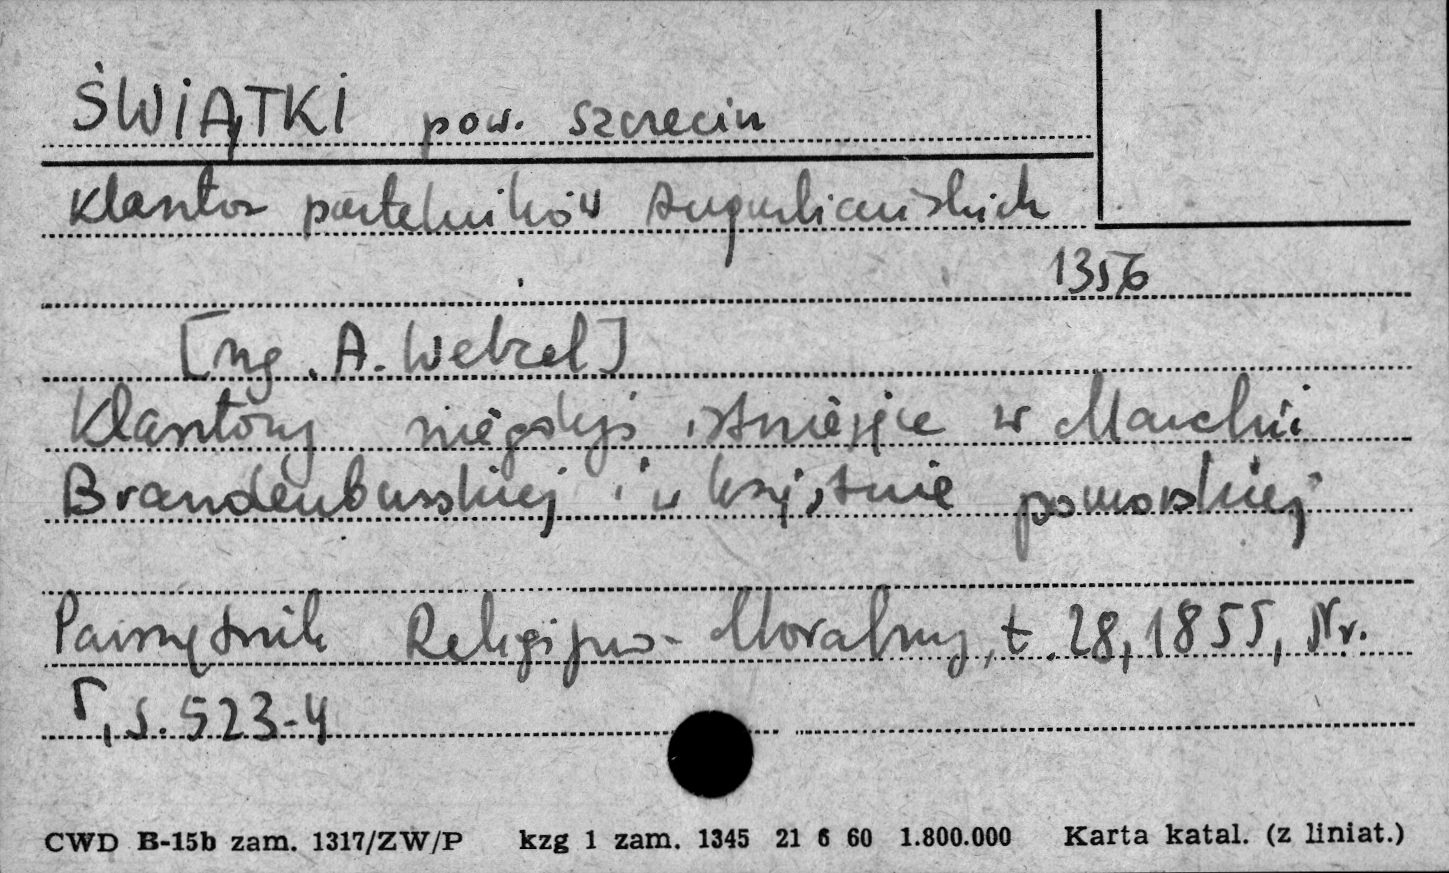 ŚWIĄTKI pow. Szczecin
Klasztor pustelników Augustiańskich
1356
[wg. A. Wetzel]
Klasztory niegdyś istniejące w Marchii
Brandenburskiej i w księstwie pomorskiej
Pamiętnik Religijno-Moralny, t. 28, 1855, Nr.
5, s. 523-4
CWD B-15b zam. 1317/ZW/P kzg 1 zam. 1345 21 6 60 1.800.000 Karta katal. (z liniat.)